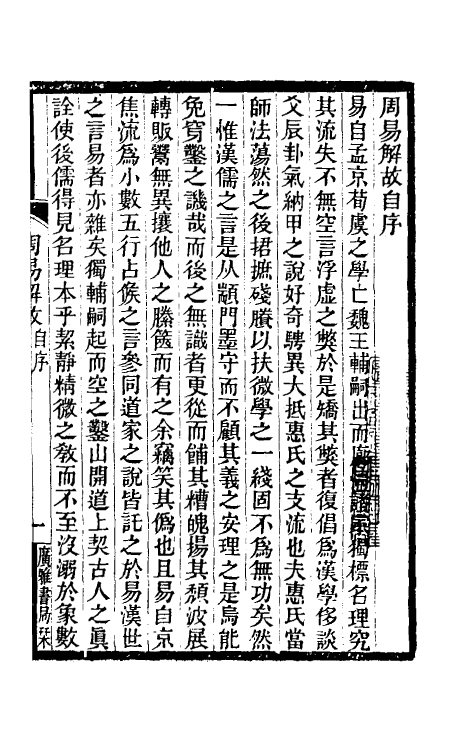 周易解故自序
易自孟京荀虞之學亡魏王輔嗣出而獨標名理究
其流失不無空言浮虛之獘於是矯其獘者復倡爲漢學侈談
爻辰卦氣納甲之說好奇騁異大抵惠氏之支流也夫惠氏當
師法蕩然之後捃摭殘賸以扶微學之一綫固不爲無功矣然
一惟漢儒之言是从顓門墨守而不顧其義之安理之是烏能
免穿鑿之譏哉而後之無識者更從而餔其糟魄揚其頽波展
轉販鬻無異攘他人之縢篋而有之余竊笑其僞也且易自京
焦流爲小數五行占候之言參同道家之說皆託之於易漢世
之言易者亦雜矣獨輔嗣起而空之鑿山開道上契古人之眞
詮使後儒得見名理本乎絜靜精微之敎而不至沒溺於象數
周易解故自序
一
廣雅書局栞